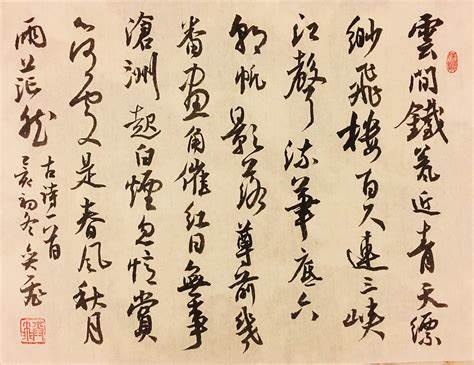 雲間鐵瓮近青天縹
緲飛樓百尺連三峽
江聲流筆底六
朝帆影落尊前幾
番畫角催紅日無事
滄洲起白煙忽憶賞
心何處是春風秋月
兩茫然
古詩一首
己亥初冬